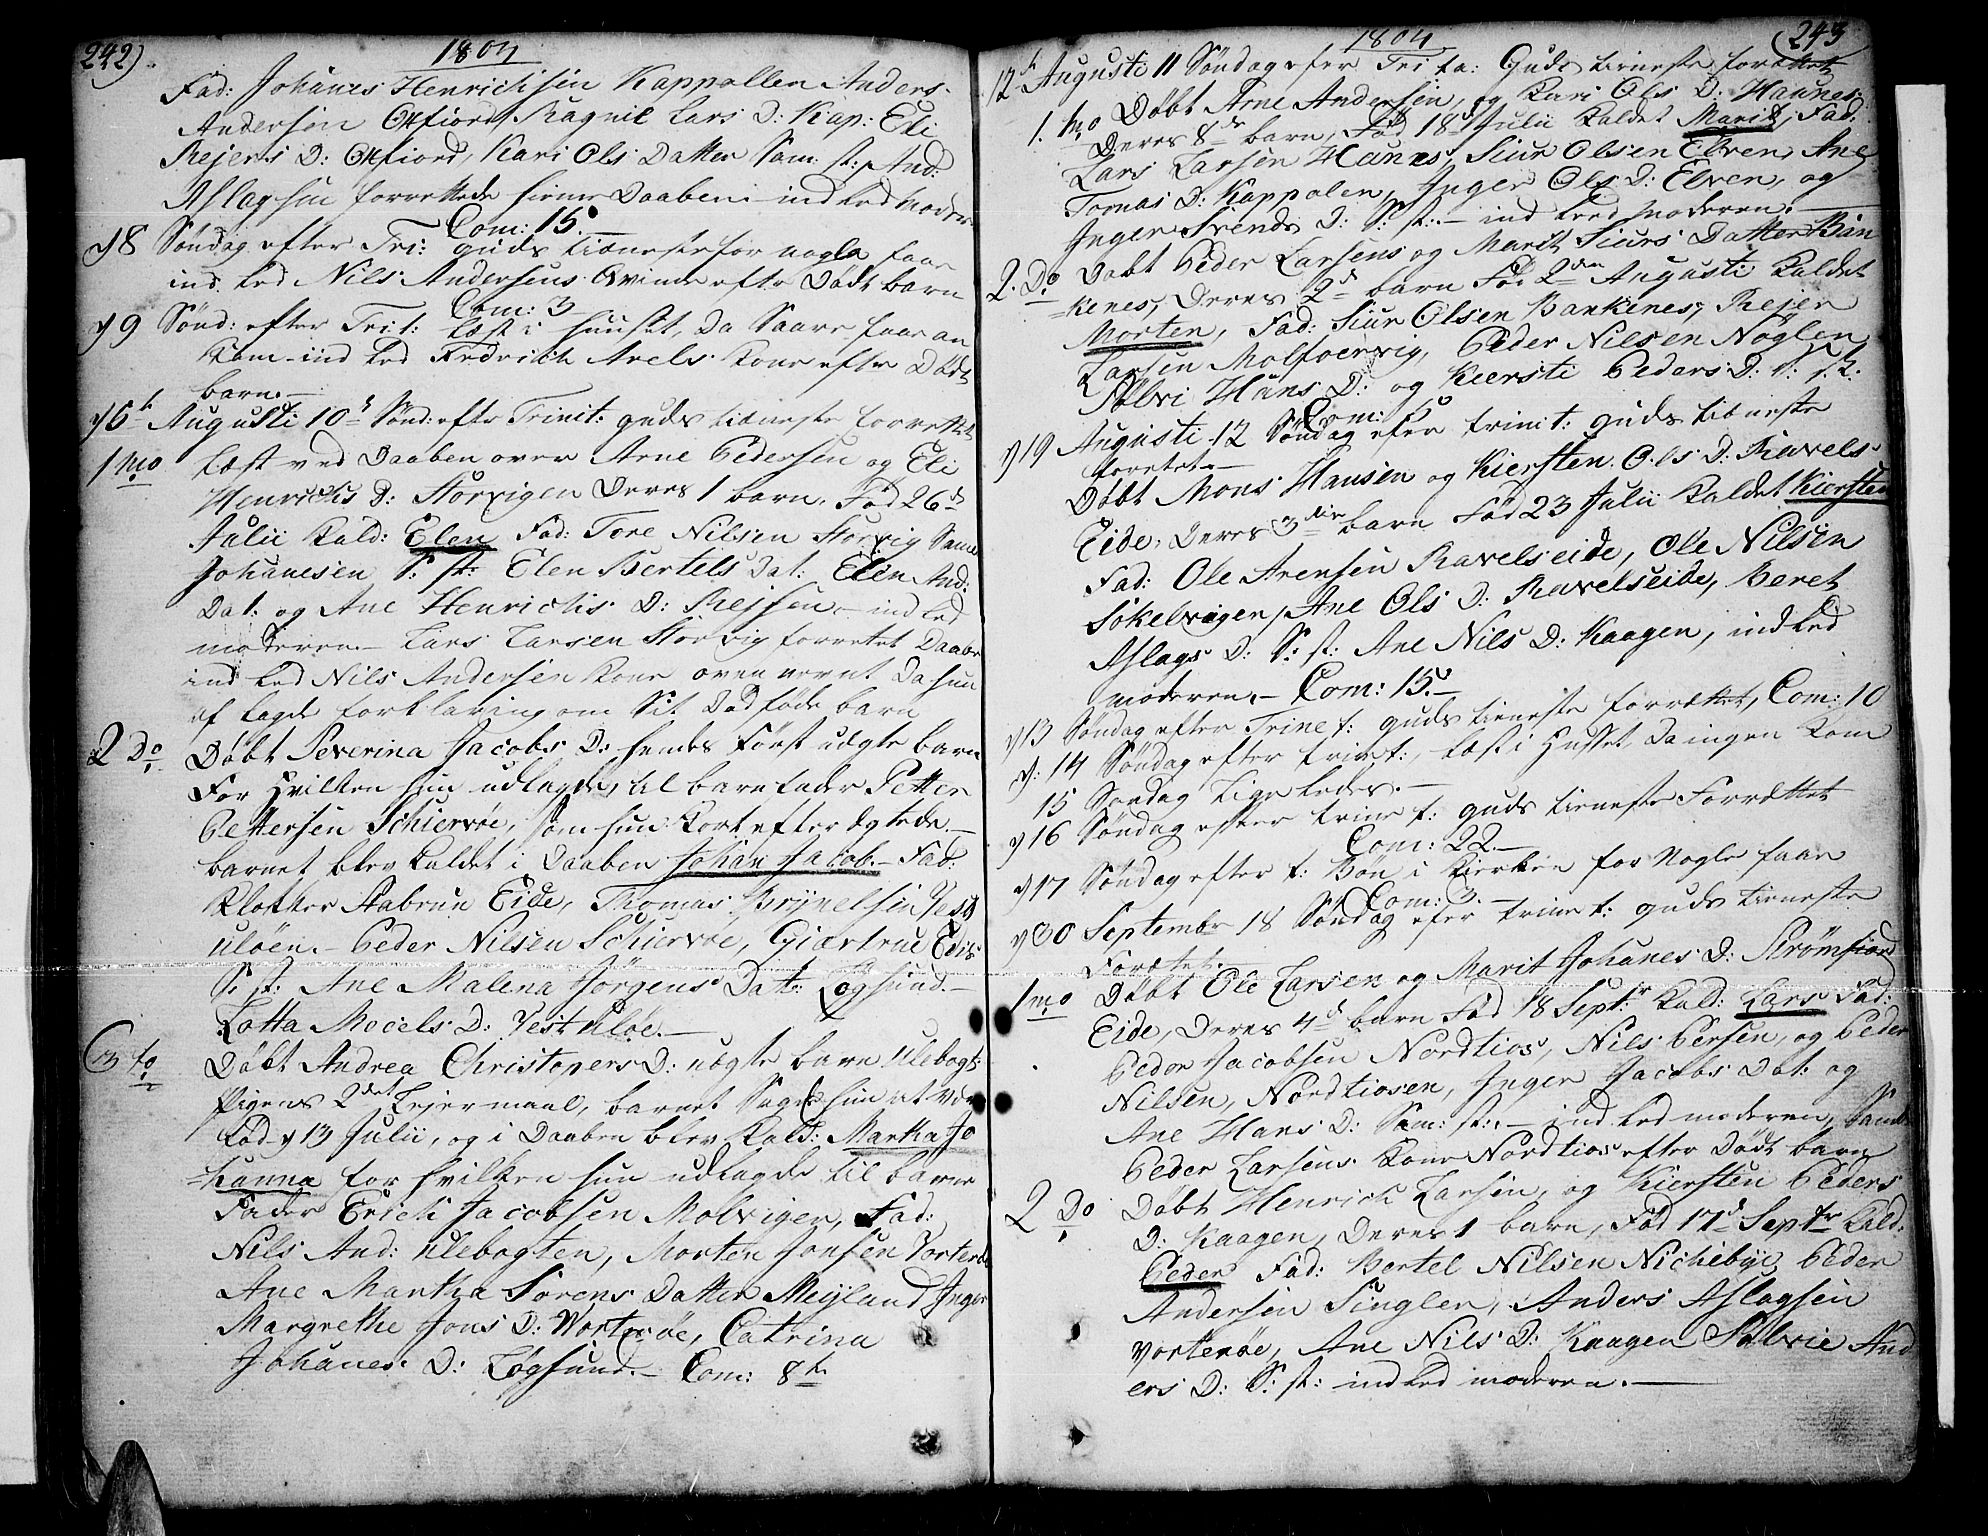 242)
1804
Fad: Johanes Henrichsen Kappollen Anders
Andersen Oxfiord, Ragnil Lars D: Kap: Eli
Rejers D: Oxfiord, Kari Ols Datter Sam: st: And:
Aslagsen forrettede hieme Daaben indled Moder
Com: 15.
y 8 Søndag efter Tri: guds tieneste for nogle faae
ind led Nils Andersens Qvinde efter Dødt barn
Com: 3
y 9 Sønd: efter Trit: læst i huuset, da Saare faae an
kom ind led Fredrich Axels kone efter Dødt
barn.
y 5t Augusti 10d Sønd: efter Trinit: guds tieneste forrettet
1mo læst ved Daaben over Arne Pedersen og Eli
Henrichs D: Storvigen Deres 1 barn, Fød 26d
Julii kald: Elen Fad: Tore Nilsen Storvig Saml
Johanesen S: st: Elen Bertels Dat: Elen And:
Dat: og Ane Henrichs D: Rejsen, ind led
moderen. Lars Larsen Storvig forrettet Daabe
ind led Nils Andersen kone oven nevnt Da hun
af lagde forklaring om Sit Død føde barn
2 Do Døbt Severina Jacobs D: hendes Først uægte barn
For Hvilken hun udlagde til barnefader Petter
Pettersen Schiervøe, som hun kort efter ægtede.
barnet blev kaldet i Daaben Johan Jacob. Fad:
Klokker Aabrun Eide, Thomas Brynelsen Vest
uløen. Peder Nilsen Schiervøe, Giærtrue Edis
S: st: Ane Malena Jørgens Dat: Løgsund.
Lotta Mocels D: Vest uløe.
3 to Døbt Andrea Christophers D: uægte barn Ulebogt:
Pigens 2det Lejermaal, barnet Sagde hun at vær
fød y 13 Julii, og i Daaben blev kald: Martha Jo
hanna for hvilken hun udlagde til barne
Fader Erich Jacobsen Molvigen, Fad:
Nils And: Ulebogten, Morten Jonsen Vorterø
Ane Martha Sørens Datter Meyland Inger
Margrethe Jons D: Vorterøe, Catrina
Johanes D: Løgsund. Com: 8t
1804
(243
12t Augusti 11 Søndag efer Trita: Guds tieneste forættet
1. mo Døbt Arne Andersen, og Kari Ols D: Haunes
Deres 8de barn, Fød 18d Julii kaldet Marit, Fad:
Lars Larsen Haunes, Siur Olsen Elven, Ane
Tomas D: Kappolen, Inger Ols D: Elven, og
Inger Svends D: S: st: ind led Moderen.
2. Do Døbt Peder Larsens og Marit Siurs Datter Ban
kenes, Deres 2d barn Fød 2den Augusti kaldet
Morten, Fad: Siur Olsen Bankenes, Rejer
Larsen Molfoervig, Peder Nilsen Nøglen
Sølvi Hans D: og Kiersti Peders D: S: st:
Com: 5
y 19 Augusti 12 Søndag efer trinit: guds tieneste
forettet.
Døbt Mons Hansen og Kiersten Ols D: Ravels
Eide, Deres 3die barn Fød 23 Julii kaldet Kiersten
Fad: Ole Arensen Ravelseide, Ole Nilsen
Sokelvigen, Ane Ols D: Ravelseide, Beret
Aslags D: S: st: Ane Nils D: Kaagen, ind led
moderen. Com: 15.
y 13 Søndag efter Trinet: guds tieneste forrættet, Com: 10
y: 14 Søndag efter trinet:, læst i Husset, da ingen kom
15 Søndag Ligeledes.
y 16 Søndag efter trinet: guds tieneste Forrættet
Com: 22.
y 17 Søndag efter t: Bøn i kierken for Nogle faae
Com: 3.
y 30 September 18 Søndag efer trinet: guds tieneste
Forættet.
1mo Døbt Ole Larsen og Marit Johanes D: Strømfiord
Eide, Deres 4d barn Fød 18 Septr: kald: Lars Fad:
Peder Jacobsen Nordtios, Nils Persen, og Peder
Nilsen, Nordtiosen, Inger Jacobs Dat: og
Ane Hans D: Sam: st:. ind led moderen, Saml
Peder Larsens kone Nordtios efter Dødt barn
2 Do Døbt Henrich Larsen, og Kiersten Peders
D: Kaagen, Deres 1 barn, Fød 17d Septr kald:
Peder Fad: Bertel Nilsen Nichebye, Peder
Andersen Singlen, Anders Aslagsen
Vorterøe, Ane Nils D: Kaagen Sølvie And
ers D: S: st: ind led moderen.